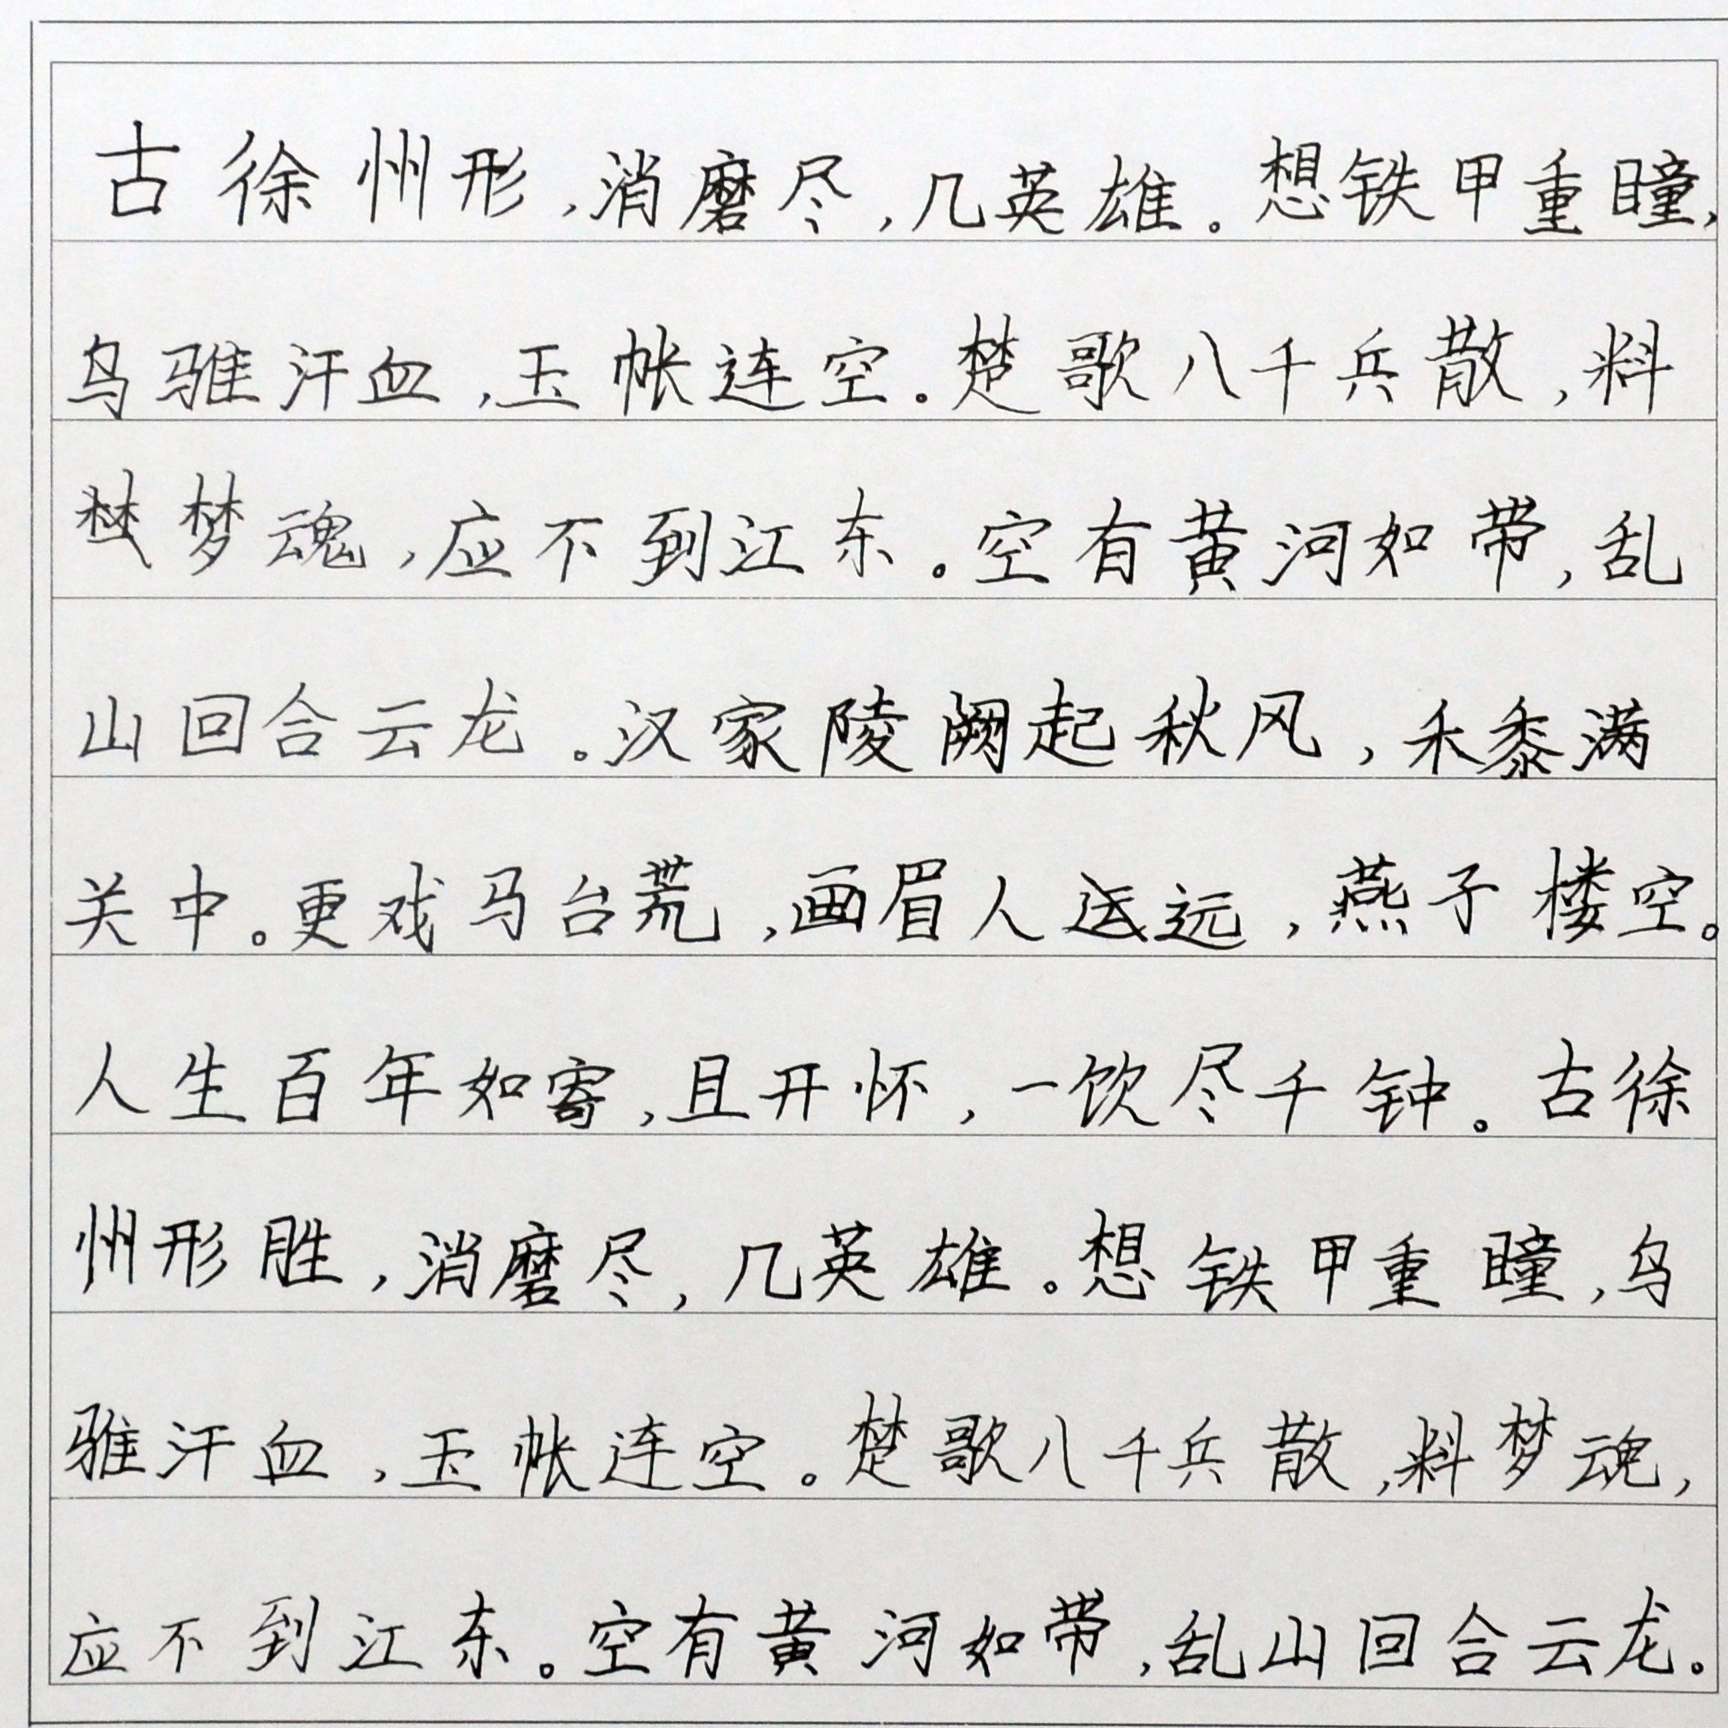 古徐州形,消磨尽,几英雄。想铁甲重瞳,
乌骓汗血,玉帐连空。楚歌八千兵散,料
梦魂,应不到江东。空有黄河如带,乱
山回合云龙。汉家陵阙起秋风,禾黍满
关中。更戏马台荒,画眉人远,燕子楼空。
人生百年如寄,且开怀,一饮尽千钟。古徐
州形胜,消磨尽,几英雄。想铁甲重瞳,乌
骓汗血,玉帐连空。楚歌八千兵散,料梦魂,
应不到江东。空有黄河如带,乱山回合云龙。